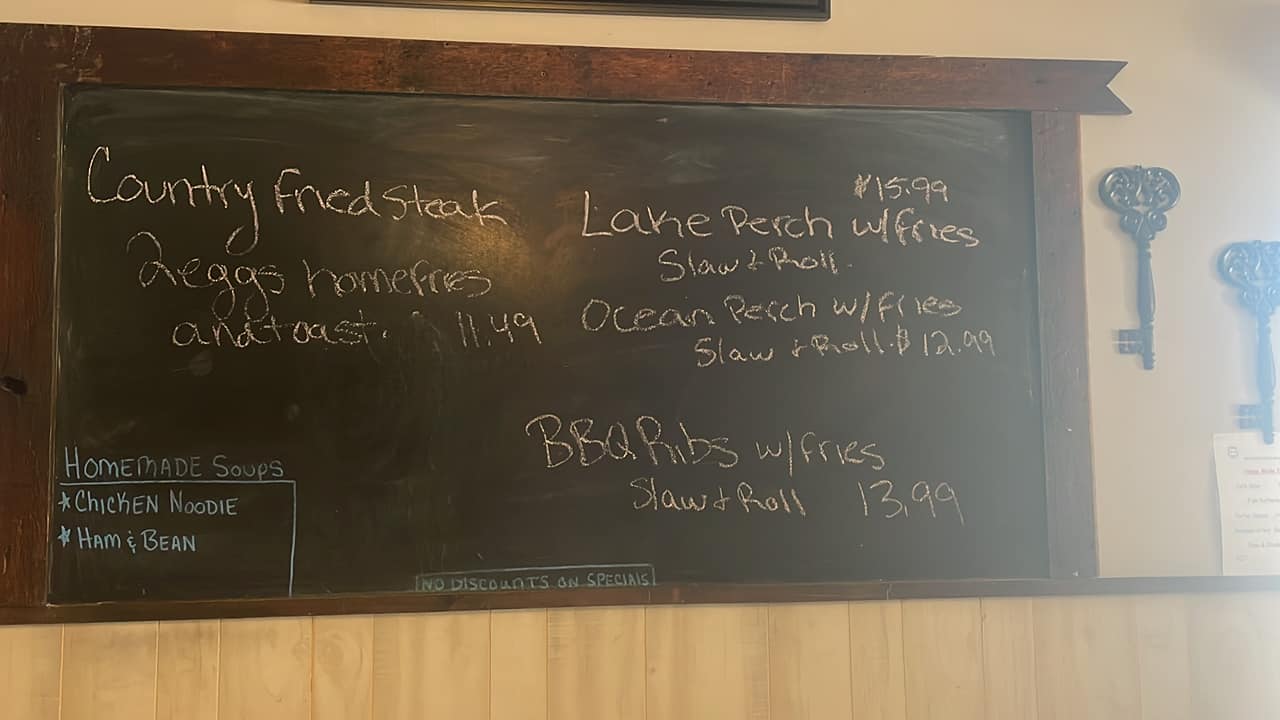 Country Fried Steak
2 eggs homefries
and toast. $ 11.49
$15.99
Lake Perch w/fries
Slaw & Roll.
Ocean Perch w/ fries
Slaw & Roll. $ 12.99
BBQ Ribs w/fries
Slaw & Roll 13.99
HOMEMADE SOUPS
* CHICKEN NOODLE
* HAM & BEAN
NO DISCOUNTS ON SPECIALS